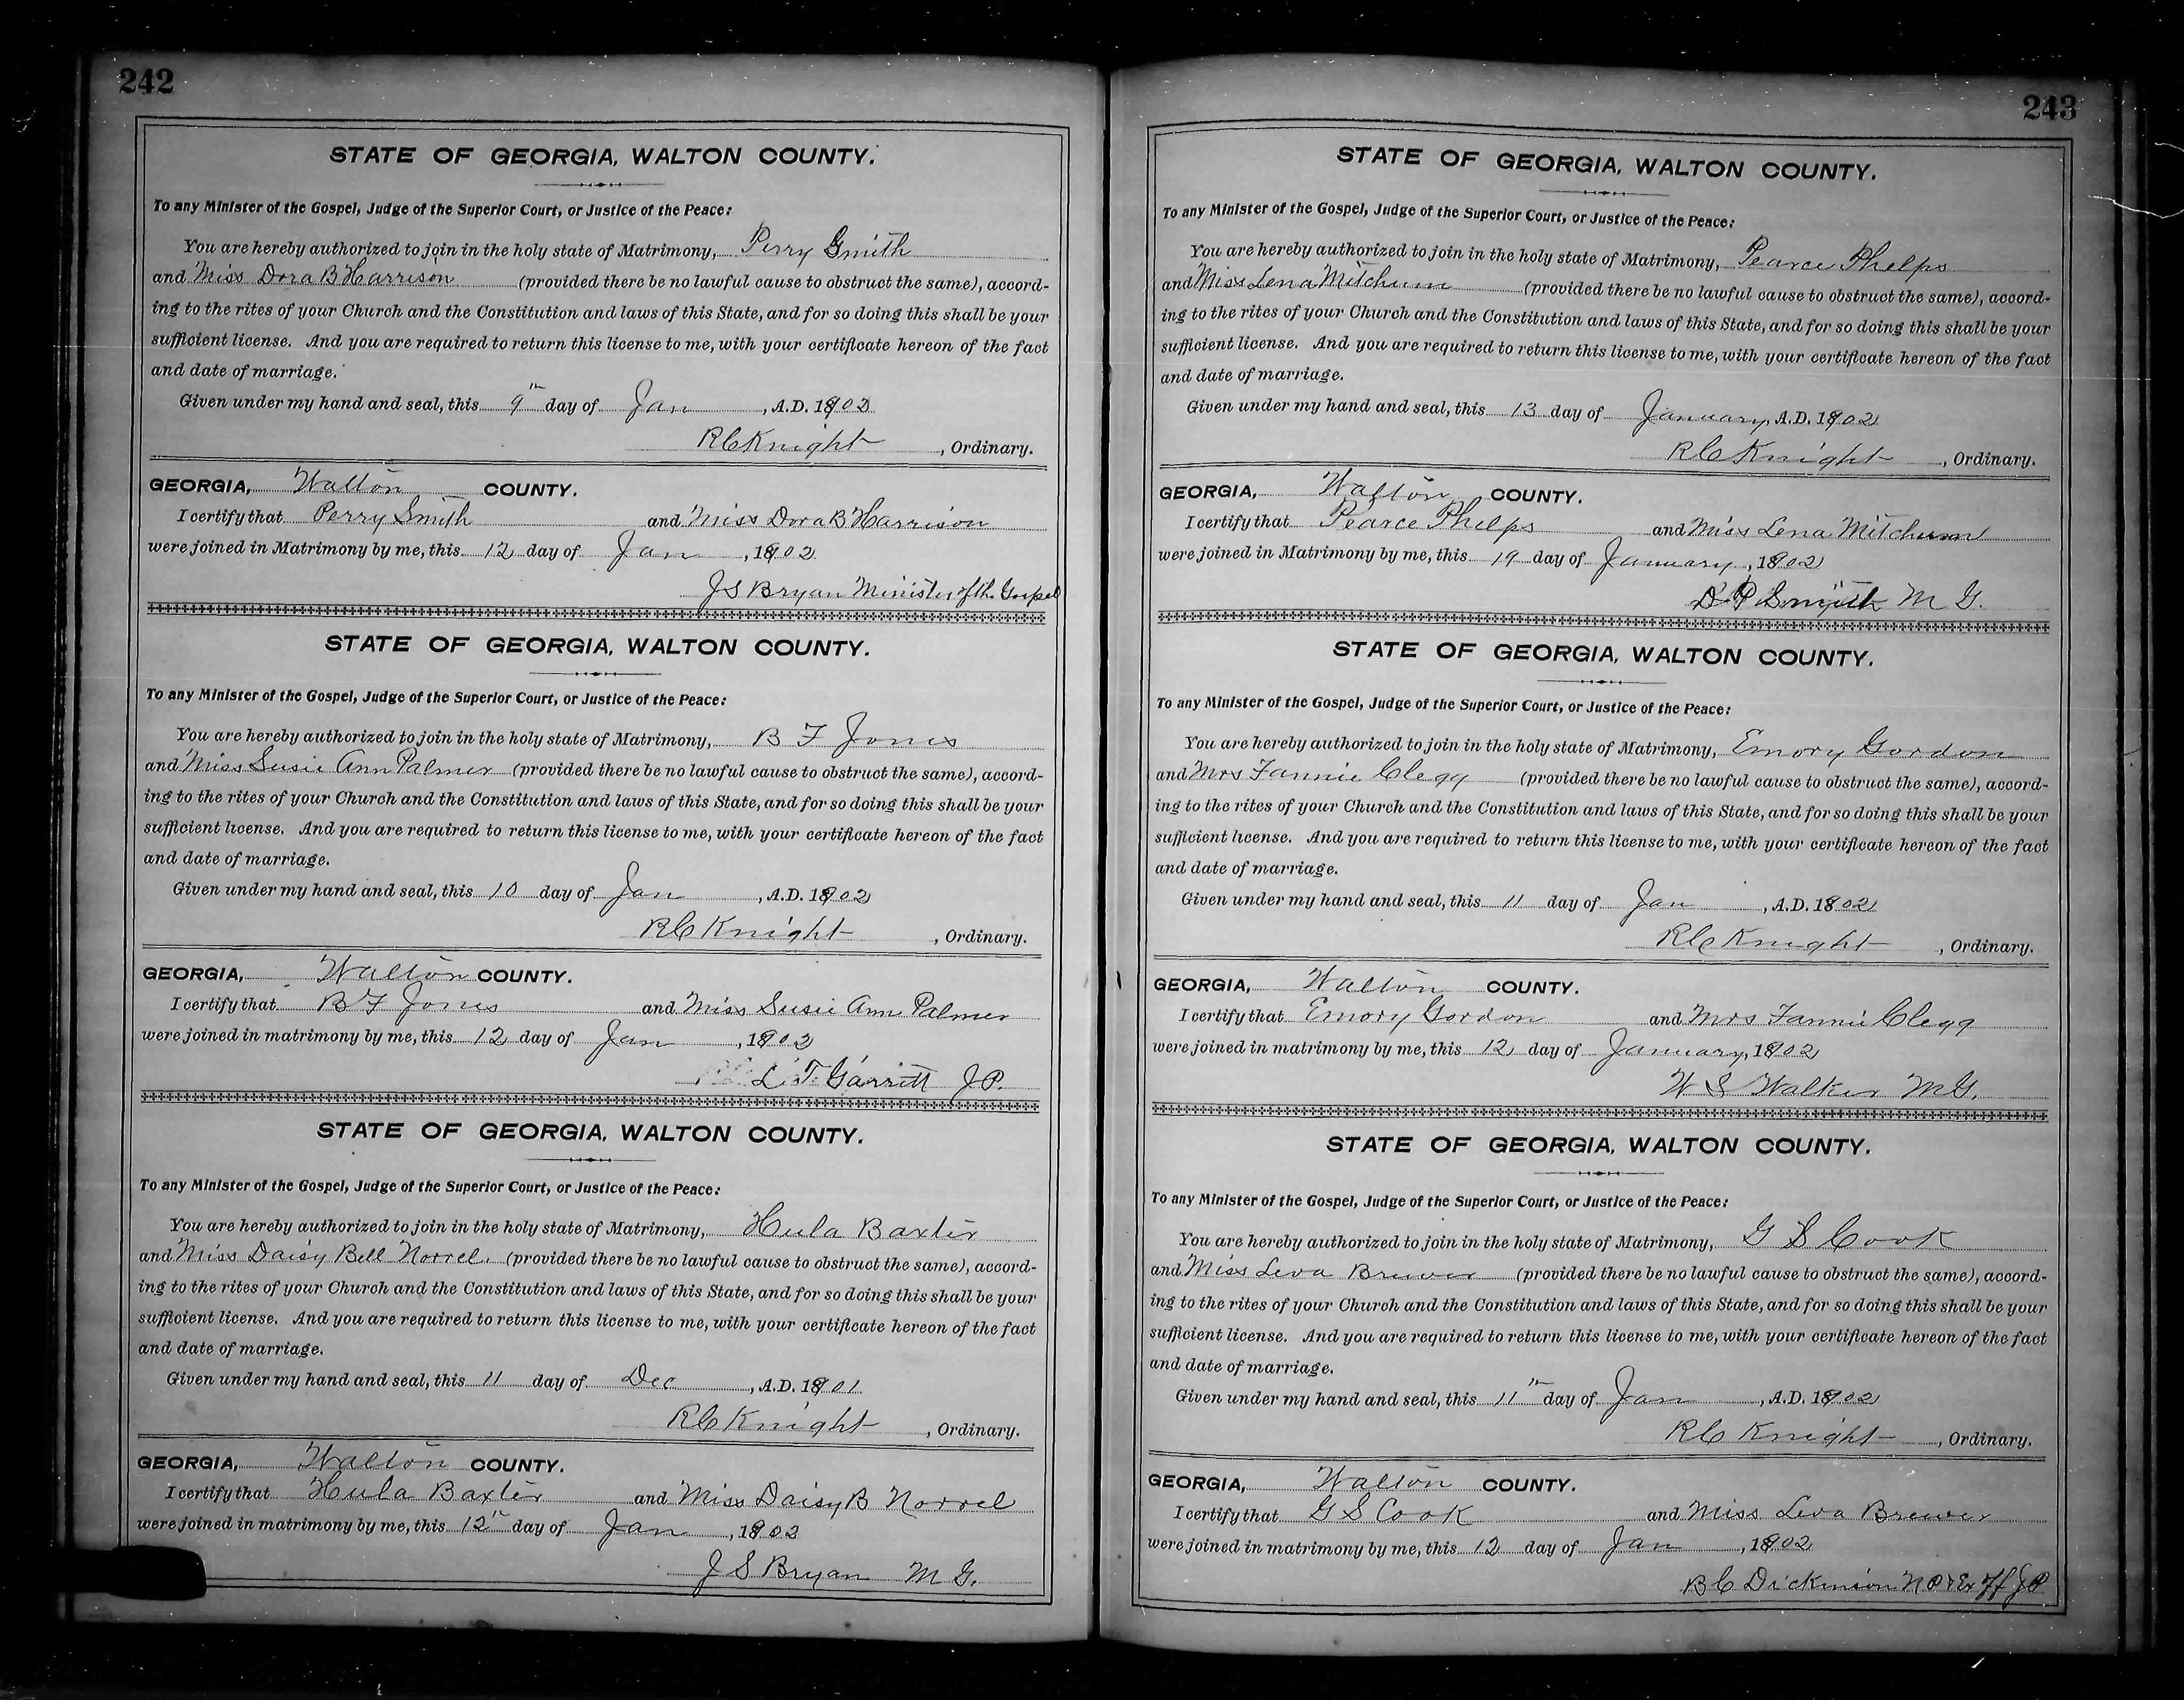 242
STATE OF GEORGIA, WALTON COUNTY.
To any Minister of the Gospel, Judge of the Superior Court, or Justice of the Peace:
You are hereby authorized to join in the holy state of Matrimony, Perry Smith
and Miss Dora B Harrison (provided there be no lawful cause to obstruct the same), accord-
ing to the rites of your Church and the Constitution and laws of this State, and for so doing this shall be your
sufficient license. And you are required to return this license to me, with your certificate hereon of the fact
and date of marriage.
Given under my hand and seal, this 9th day of Jan, A.D. 1902
R C Knight, Ordinary.
GEORGIA, Walton COUNTY.
I certify that Perry Smith and Miss Dora B Harrison
were joined in Matrimony by me, this 12 day of Jan, 1902
J S Bryan Minister of th. Gospel
STATE OF GEORGIA, WALTON COUNTY.
To any Minister of the Gospel, Judge of the Superior Court, or Justice of the Peace:
You are hereby authorized to join in the holy state of Matrimony, B F Jones
and Miss Susie Ann Palmer (provided there be no lawful cause to obstruct the same), accord-
ing to the rites of your Church and the Constitution and laws of this State, and for so doing this shall be your
sufficient license. And you are required to return this license to me, with your certificate hereon of the fact
and date of marriage.
Given under my hand and seal, this 10 day of Jan, A.D. 1902
R C Knight, Ordinary.
GEORGIA, Walton COUNTY.
I certify that B F Jones and Miss Susie Ann Palmer
were joined in matrimony by me, this 12 day of Jan, 1902
L. T. Garrett J P.
STATE OF GEORGIA, WALTON COUNTY.
To any Minister of the Gospel, Judge of the Superior Court, or Justice of the Peace:
You are hereby authorized to join in the holy state of Matrimony, Hula Baxter
and Miss Daisy Bell Norrel. (provided there be no lawful cause to obstruct the same), accord-
ing to the rites of your Church and the Constitution and laws of this State, and for so doing this shall be your
sufficient license. And you are required to return this license to me, with your certificate hereon of the fact
and date of marriage.
Given under my hand and seal, this 11 day of Dec, A.D. 1901
R C Knight, Ordinary.
GEORGIA, Walton COUNTY.
I certify that Hula Baxter and Miss Daisy B Norrel
were joined in matrimony by me, this 12th day of Jan, 1902
J S Bryan M G.
243
STATE OF GEORGIA, WALTON COUNTY.
To any Minister of the Gospel, Judge of the Superior Court, or Justice of the Peace:
You are hereby authorized to join in the holy state of Matrimony, Pearce Phelps
and Miss Lena Mitchum (provided there be no lawful cause to obstruct the same), accord-
ing to the rites of your Church and the Constitution and laws of this State, and for so doing this shall be your
sufficient license. And you are required to return this license to me, with your certificate hereon of the fact
and date of marriage.
Given under my hand and seal, this 13 day of January, A.D. 1902
R C Knight, Ordinary.
GEORGIA, Walton COUNTY.
I certify that Pearce Phelps and Miss Lena Mitchum
were joined in Matrimony by me, this 19 day of January, 1902
D. P. Smith M G.
STATE OF GEORGIA, WALTON COUNTY.
To any Minister of the Gospel, Judge of the Superior Court, or Justice of the Peace:
You are hereby authorized to join in the holy state of Matrimony, Emory Gordon
and Mrs Fannie Clegg (provided there be no lawful cause to obstruct the same), accord-
ing to the rites of your Church and the Constitution and laws of this State, and for so doing this shall be your
sufficient license. And you are required to return this license to me, with your certificate hereon of the fact
and date of marriage.
Given under my hand and seal, this 11 day of Jan, A.D. 1902
R C Knight, Ordinary.
GEORGIA, Walton COUNTY.
I certify that Emory Gordon and Mrs Fannie Clegg
were joined in matrimony by me, this 12 day of January, 1902
W S Walker M G.
STATE OF GEORGIA, WALTON COUNTY.
To any Minister of the Gospel, Judge of the Superior Court, or Justice of the Peace:
You are hereby authorized to join in the holy state of Matrimony, G S Cook
and Miss Leva Brewer (provided there be no lawful cause to obstruct the same), accord-
ing to the rites of your Church and the Constitution and laws of this State, and for so doing this shall be your
sufficient license. And you are required to return this license to me, with your certificate hereon of the fact
and date of marriage.
Given under my hand and seal, this 11th day of Jan, A.D. 1902
R C Knight, Ordinary.
GEORGIA, Walton COUNTY.
I certify that G S Cook and Miss Leva Brewer
were joined in matrimony by me, this 12 day of Jan, 1902
B C Dickinson N P & Ex off J P